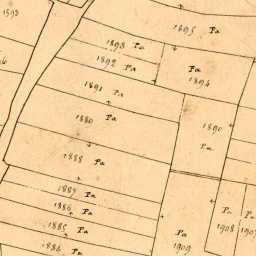 1895 Pa
1893 Pa
1892 Pa
Pa
1894
1891 Pa
1880 Pa
1890
Pa
1888 Pa
1887 Pa
1886 Pa
1885 Pa
1884 Pa
Pa
1909
Pa
1908
Pa
1907